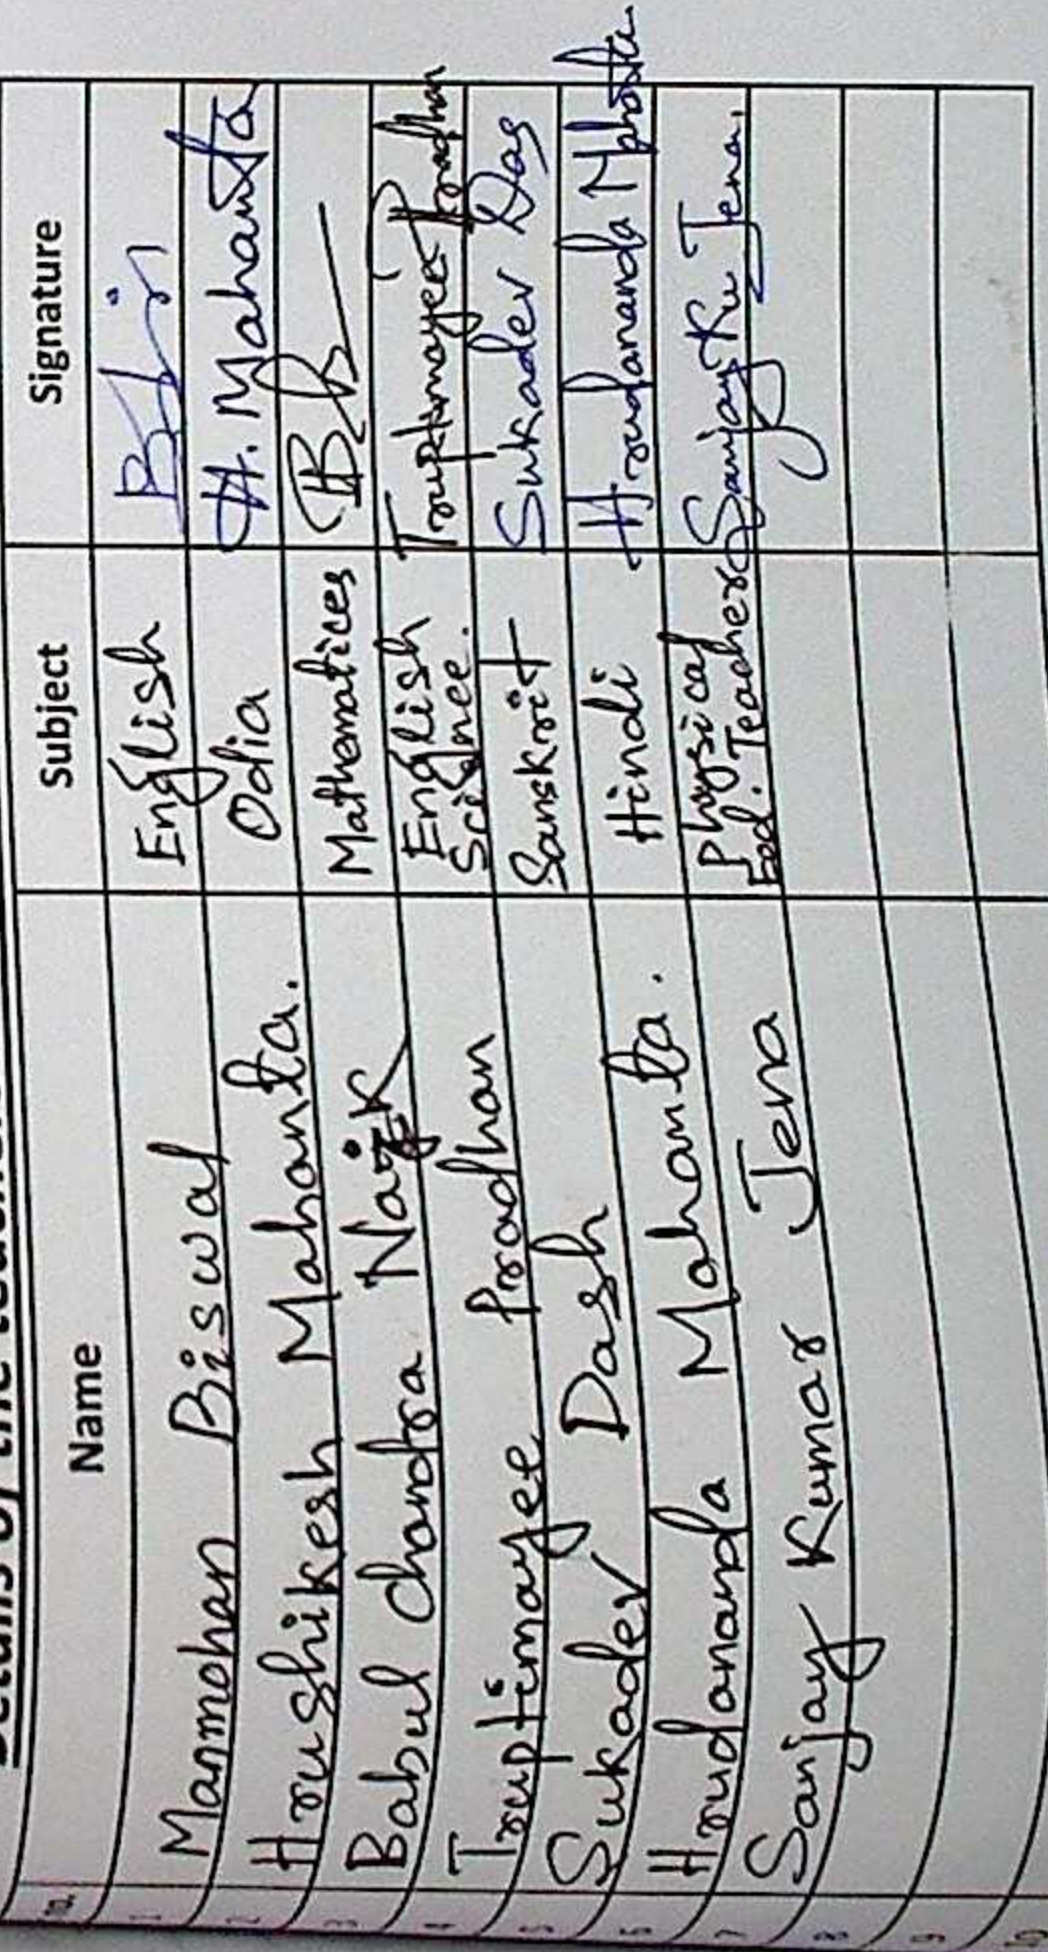 Details of the
Name Subject Signature
1 Manmohan Biswal English
2 Hrushikesh Mahanta. Odia H. Mahanta
3 Babul Chandra Naik Mathematices
4 Truptimayee Pradhan English Science. Truptimayee Pradhan
5 Sukadev Dash Sanskrit Sukadev Das
6 Hrudananda Mahanta. Hindi Hrudananda
7 Sanjay Kumar Jena Physical Eed. Teacher Sanjay Ku Jena.
8
9
10